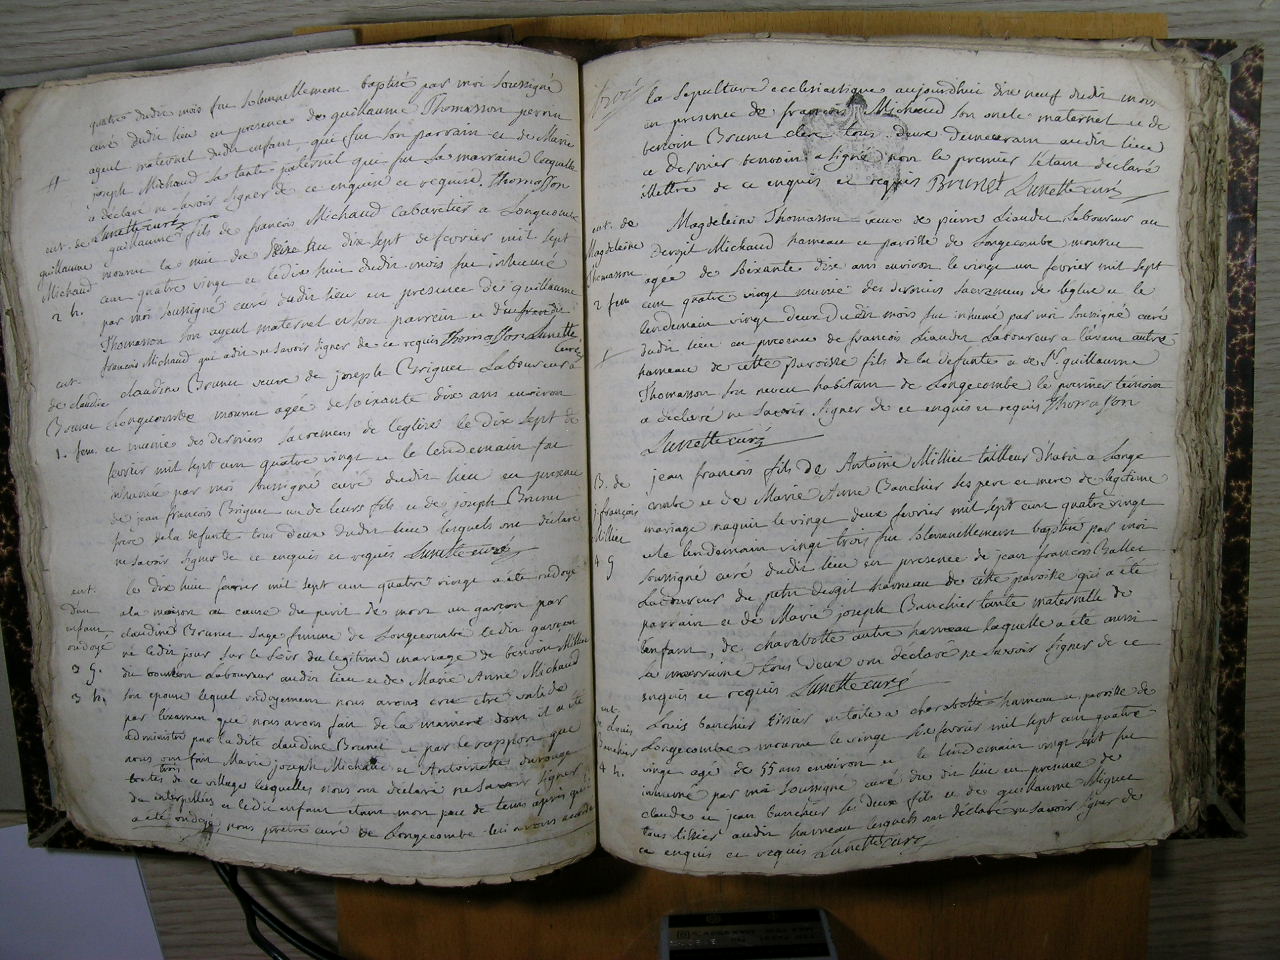 quatre dudit mois fut solemnellement baptisé par moi soussigné
curé dudit lieu en presence de guillaume Thomasson perrin
ayeul maternel dudit enfant, qui fut son parrain et de Marie
joseph Michaud sa tante paternel que fut la marraine laquelle
a déclaré ne savoir signer de ce enquise et requise. Thomasson
Lunette curé
ent. de
guillaume
Michaud
2 h.
guillaume fils de françois Michaud Cabaretier a Longecombe
mourut la nuit du seize au dix sept de fevrier mil sept
cent quatre vingt et le dix huit dudit mois fut inhumé
par moi soussigné curé dudit lieu en presence de guillaume
Thomasson son ayeul maternel et son parrein et de
françois Michaud qui a dit ne savoir signer de ce requis Thomasson Lunette
curé
ent.
de claudine
Brunet
1. fem.
claudine Brunet veuve de joseph Briguet Laboureur à
Longecombe mourut agée de soixante dix ans environ
et munie des derniers sacremens de l'eglise le dix sept de
fevrier mil sept cent quatre vingt et le lendemain fut
inhumée par moi soussigné curé dudit lieu en presence
de jean françois Briguet un de leurs fils et de joseph Brunet
frere de la defunte tous deux dudit lieu lesquels ont déclaré
ne savoir signer de ce enquis et requis Lunette curé
ent.
d'un
enfant
ondoyé
3 g.
3 h.
le dix huit fevrier mil sept cent quatre vingt a été ondoyé
a la maison au cause du peril de mort un garçon par
claudine Brunet sage femme de Longecombe ledit garçon
né ledit jour sur le soir du legitime mariage de benoit Millet
laboureur audit lieu et de Marie Anne Michaud
son epouse lequel ondoyement nous avons cru etre valide
par l'examen que nous avons fait de la maniere dont il a été
administré par ladite claudine Brunet et par le rapport que
nous ont fait Marie joseph Michaud et Antoinette
toutes de ce village lesquelles nous ont déclaré ne savoir signer
de interpellées et ledit enfant etant mort peu de tems après qu'il
a été ondoyé, nous pretre curé de Longecombe lui avons accordé
la sepulture ecclesiastique aujourdhui dix neuf dudit mois
en presence de françois Michaud son oncle maternel et de
benoit Brunet clerc tous deux demeurant audit lieu
ce dernier temoin a signé non le premier letant déclaré
illettré de ce enquis et requis Brunet Lunette curé
ent. de
Magdeleine
Thomasson
2 fem
Magdeleine Thomasson veuve de pierre Liaudet Laboureur au
Michaud hameau et paroisse de Longecombe mourut
agée de soixante dix ans environ le vingt un fevrier mil sept
cent quatre vingt munie des derniers sacremens de leglise et le
lendemain vingt deux dudit mois fut inhumé par moi soussigné curé
dudit lieu en presence de françois Liaudet Laboureur a autre
hameau de cette paroisse fils de la defunte et de Sr. guillaume
Thomasson son neveu habitant de Longecombe le premier temoin
a déclaré ne savoir signer de ce enquis et requis Thomasson
Lunette curé
B. de
j. françois
Millet
4 g
jean françois fils de Antoine Millet tailleur d'habit a Longe
combe et de Marie Anne Banchet ses pere et mere de legitime
mariage naquit le vingt deux fevrier mil sept cent quatre vingt
et le lendemain vingt trois fut solemnellement baptisé par moi
soussigné curé dudit lieu en presence de jean françois Ballet
Laboureur du petit hameau de cette paroisse qui a été
parrain et de Marie joseph Banchet tante maternelle de
lenfant, de charabotte autre hameau laquelle a été aussi
la marraine tous deux ont déclaré ne savoir signer de ce
enquis et requis Lunette curé
ent.
de louis
Banchet
4 h.
Louis banchet tissier en toile a charabotte hameau et paroisse de
Longecombe mourut le vingt six fevrier mil sept cent quatre
vingt agé de 55 ans environ et le lendemain vingt sept fut
inhumé par moi soussigné curé du dit lieu en presence de
claude et jean banchet ses deux fils et de guillaume
tous tissier audit hameau lesquels ont déclaré ne savoir signer de
ce enquis et requis Lunette curé